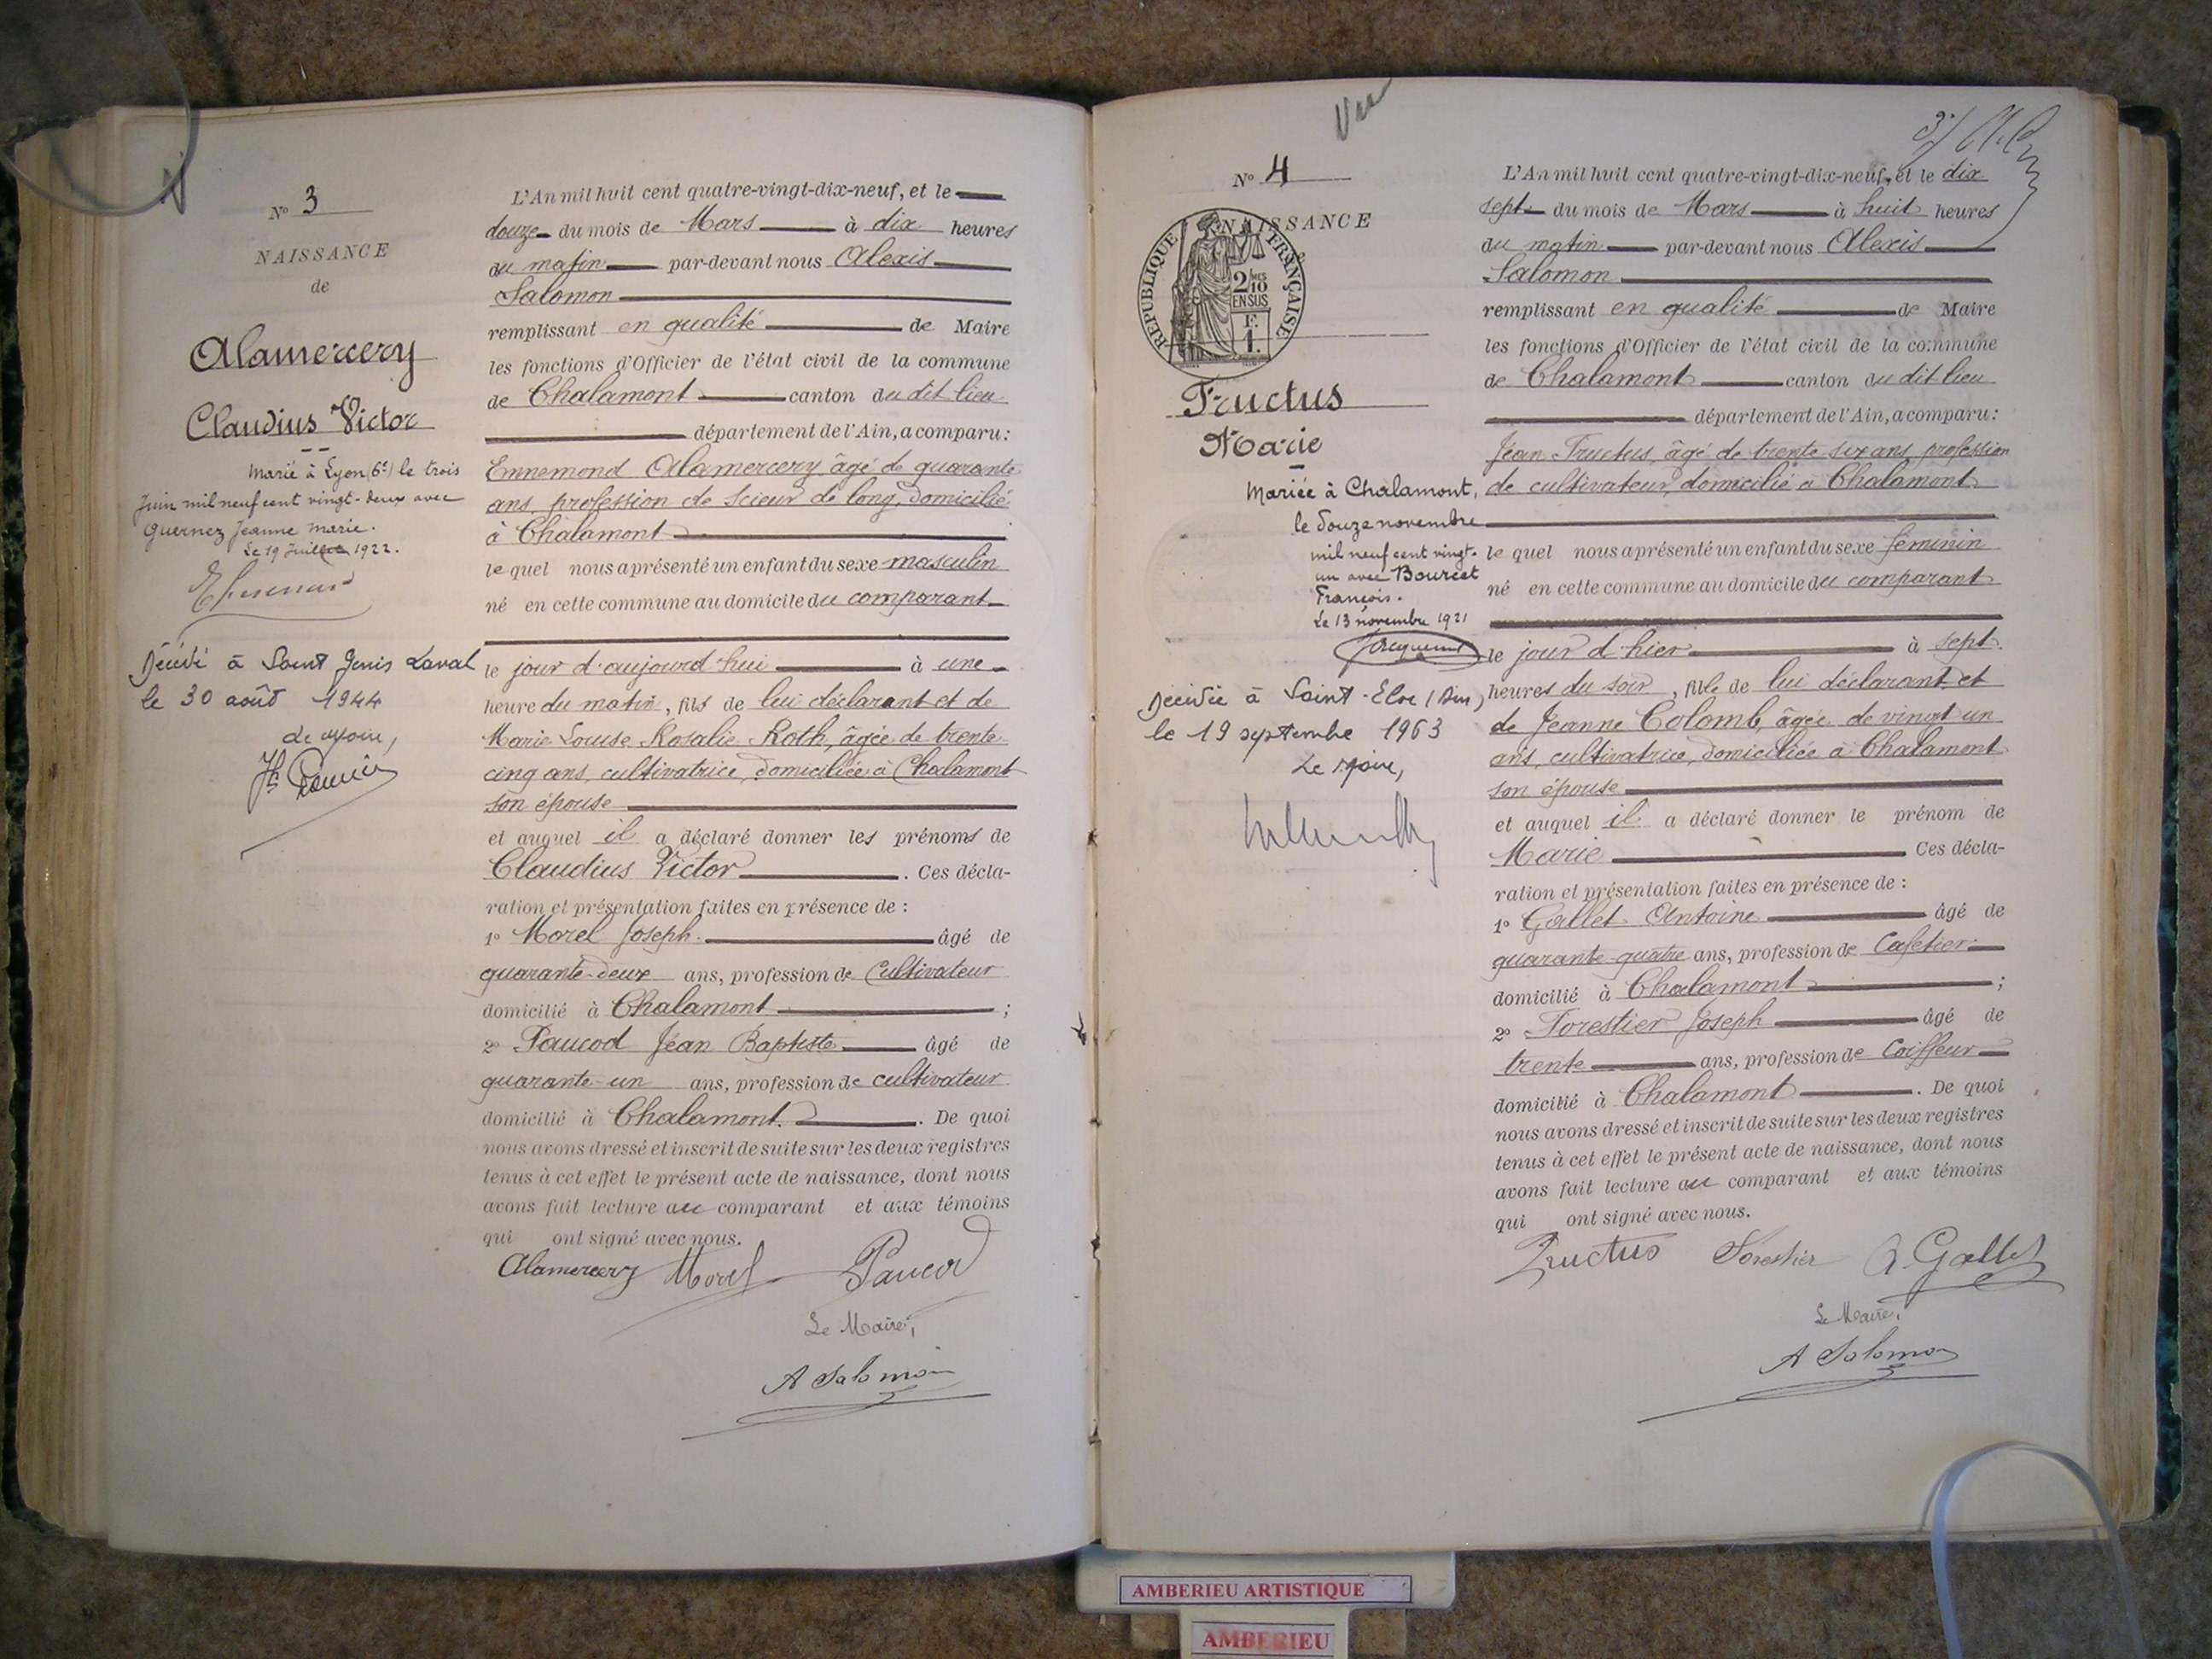 N° 3
NAISSANCE
de
Alamercery
Claudius Victor
Marié à Lyon (6e) le trois
Juin mil neuf cent vingt-deux avec
Guernez Jeanne Marie.
Le 19 Juillet 1922.
Décédé à Saint Genis Laval
le 30 août 1944
Le Maire,
L'An mil huit cent quatre-vingt-dix-neuf, et le
douze du mois de Mars à dix heures
du matin par-devant nous Alexis
Salomon
remplissant en qualité de Maire
les fonctions d'Officier de l'état civil de la commune
de Chalamont canton du dit lieu
département de l'Ain, a comparu:
Ennemond Alamercery âgé de quarante
ans, profession de Scieur de long, domicilié
à Chalamont
le quel nous a présenté un enfant du sexe masculin
né en cette commune au domicile du comparant
le jour d'aujourd'hui à une
heure du matin, fils de lui déclarant et de
Marie Louise Rosalie Roth, âgée de trente
cinq ans, cultivatrice, domiciliée à Chalamont
son épouse
et auquel il a déclaré donner les prénoms de
Claudius Victor. Ces décla-
ration et présentation faites en présence de:
1° Morel Joseph âgé de
quarante-deux ans, profession de Cultivateur
domicilié à Chalamont;
2° Paucod Jean Baptiste âgé de
quarante-un ans, profession de cultivateur
domicilié à Chalamont. De quoi
nous avons dressé et inscrit de suite sur les deux registres
tenus à cet effet le présent acte de naissance, dont nous
avons fait lecture au comparant et aux témoins
qui ont signé avec nous.
Alamercery Morel Paucod
Le Maire,
A Salomon
Vu
N° 4
NAISSANCE
REPUBLIQUE FRANÇAISE
2/10 MES
EN SUS
F.
1.
Fructus
Marie
Mariée à Chalamont,
le douze novembre
mil neuf cent vingt-
un avec Bourcet
François.
Le 13 novembre 1921
Décédée à Saint-Eloi (Ain)
le 19 septembre 1963
Le Maire,
L'An mil huit cent quatre-vingt-dix-neuf, et le dix
sept du mois de Mars à huit heures
du matin par-devant nous Alexis
Salomon
remplissant en qualité de Maire
les fonctions d'Officier de l'état civil de la commune
de Chalamont canton du dit lieu
département de l'Ain, a comparu:
Jean Fructus, âgé de trente six ans, profession
de cultivateur, domicilié à Chalamont
le quel nous a présenté un enfant du sexe féminin
né en cette commune au domicile du comparant
le jour d'hier à sept
heures du soir, fille de lui déclarant et
de Jeanne Colomb, âgée de vingt un
ans, cultivatrice, domiciliée à Chalamont
son épouse
et auquel il a déclaré donner le prénom de
Marie Ces décla-
ration et présentation faites en présence de:
1° Gallet Antoine âgé de
quarante-quatre ans, profession de Cafetier
domicilié à Chalamont;
2° Forestier Joseph âgé de
trente ans, profession de Coiffeur
domicilié à Chalamont. De quoi
nous avons dressé et inscrit de suite sur les deux registres
tenus à cet effet le présent acte de naissance, dont nous
avons fait lecture au comparant et aux témoins
qui ont signé avec nous.
Fructus Forestier A. Gallet
Le Maire,
A Salomon
AMBERIEU ARTISTIQUE
AMBERIEU